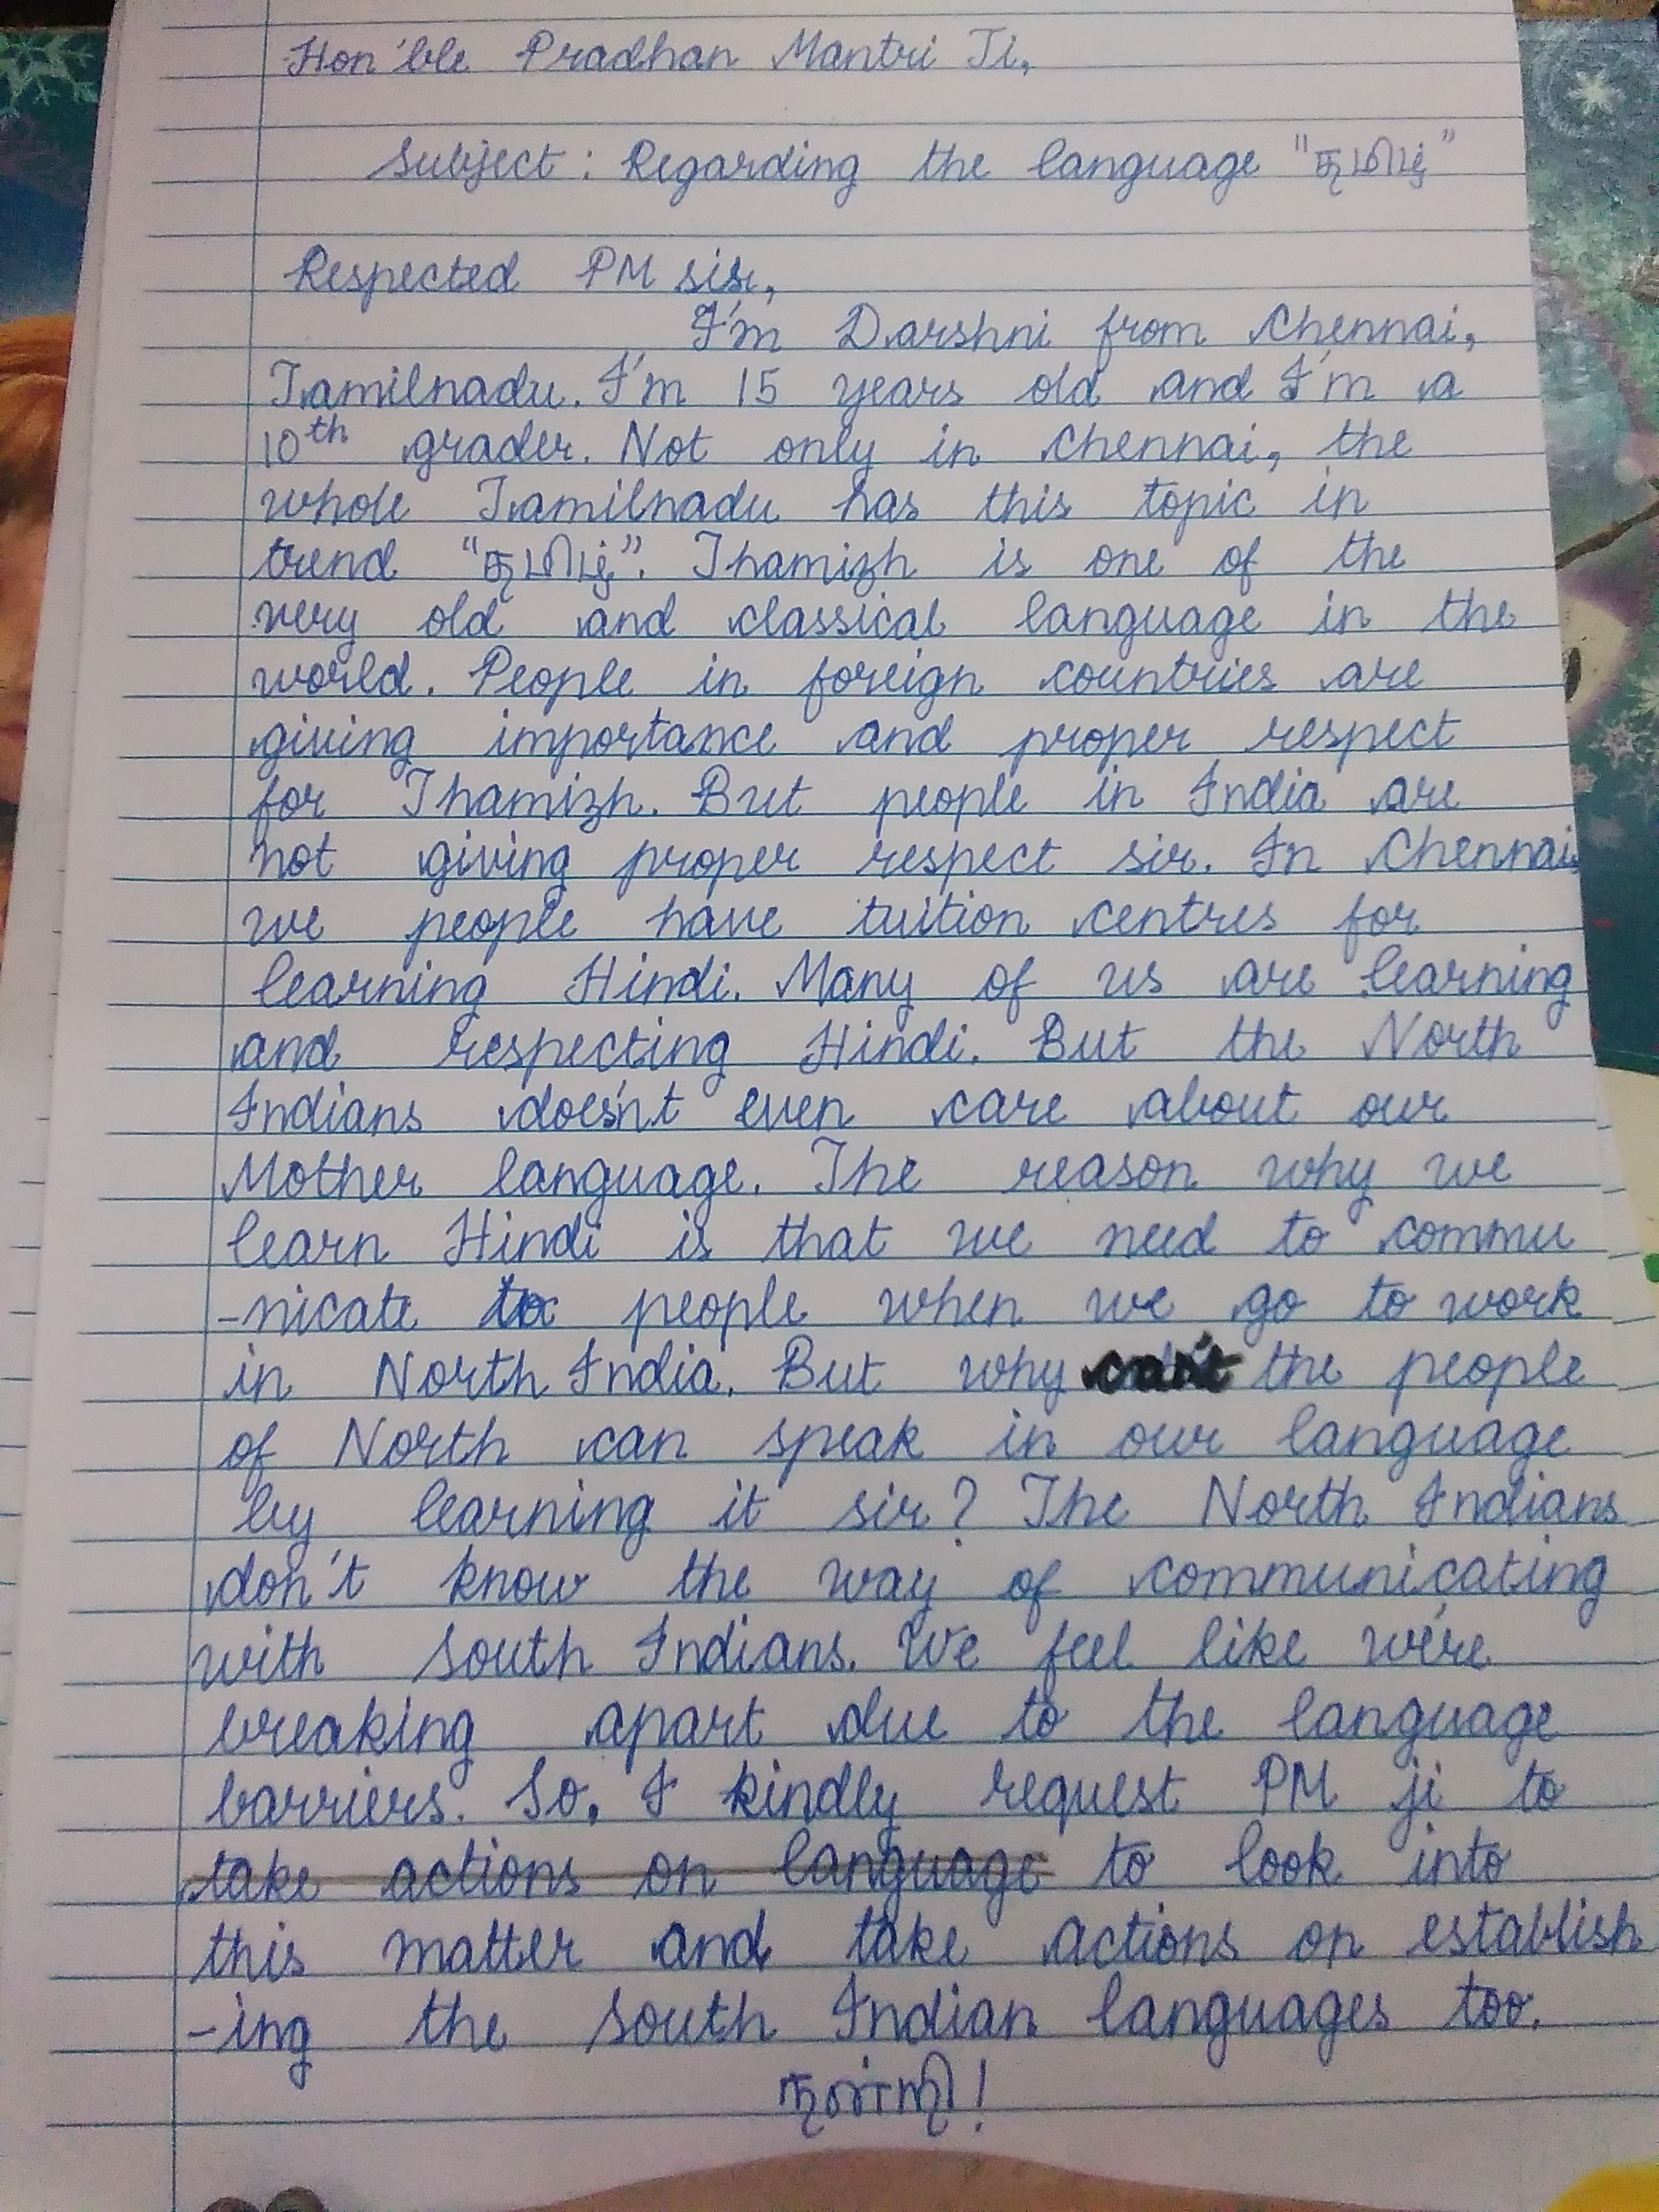 Hon'ble Pradhan Mantri Ji,
Subject : Regarding the language "தமிழ்"
Respected PM sir,
I'm Darshni from Chennai,
Tamilnadu. I'm 15 years old and I'm a
10th grader. Not only in Chennai, the
whole Tamilnadu has this topic in
trend "தமிழ்". Thamizh is one of the
very old and classical language in the
world. People in foreign countries are
giving importance and proper respect
for Thamizh. But people in India are
not giving proper respect sir. In Chennai,
we people have tuition centres for
learning Hindi. Many of us are learning
and respecting Hindi. But the North
Indians does'nt even care about our
Mother language. The reason why we
learn Hindi is that we need to commu
-nicate to people when we go to work
in North India. But why can't the people
of North can speak in our language
by learning it sir? The North Indians
don't know the way of communicating
with South Indians. We feel like we're
breaking apart due to the language
barriers. So, I kindly request PM ji to
take actions on language to look into
this matter and take actions on establish
-ing the South Indian languages too.
நன்றி!